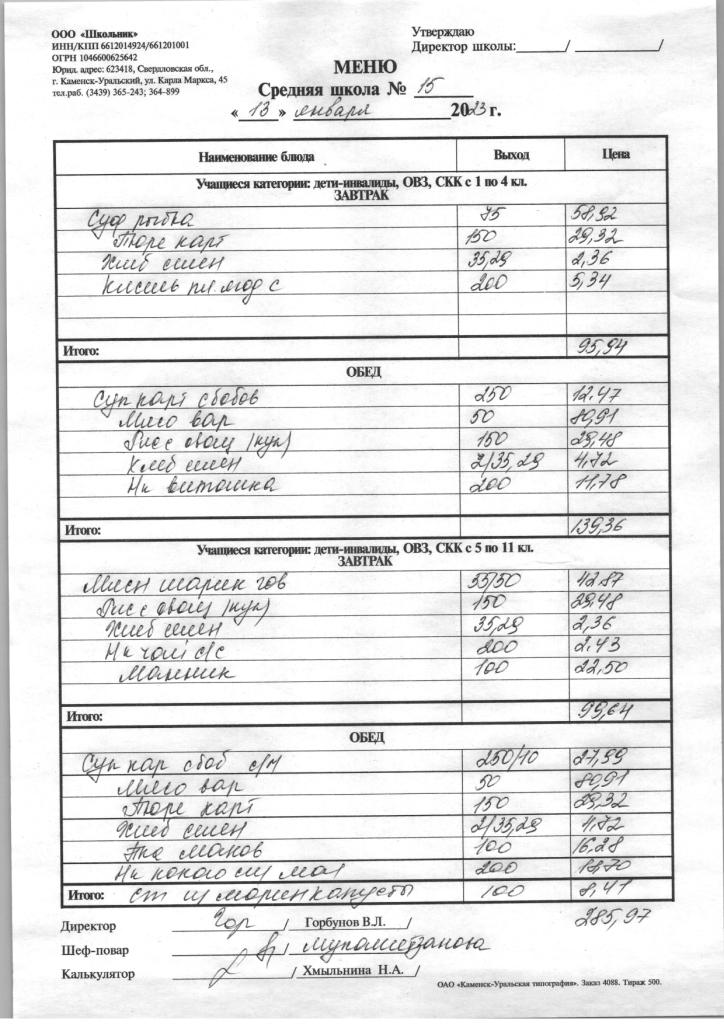 ООО «Школьник»
ИНН/КПП 6612014924/661201001
ОГРН 1046600625642
Юрид. адрес: 623418, Свердловская обл.,
г. Каменск-Уральский, ул. Карла Маркса, 45
тел.раб. (3439) 365-243; 364-899
Утверждаю
Директор школы:________/ ____________/
МЕНЮ
Средняя школа № 15
« 13 » января 2023 г.
Наименование блюда Выход Цена
Учащиеся категории: дети-инвалиды, ОВЗ, СКК с 1 по 4 кл.
ЗАВТРАК
Суф рыбка 75 58,92
Пюре карт 150 29,32
Хлеб пшен 35,29 2,36
Кисель пл. ягод с 200 5,34
Итого: 95,94
ОБЕД
Суп карт с бобов 250 12,47
Мясо вар 50 80,91
Рис с овощ (кук) 150 29,48
Хлеб пшен 2/35,29 4,72
Нк витошка 200 11,78
Итого: 139,36
Учащиеся категории: дети-инвалиды, ОВЗ, СКК с 5 по 11 кл.
ЗАВТРАК
Мясн шарик гов 55/50 42.87
Рис с овощ (кук) 150 29,48
Хлеб пшен 35,29 2,36
Нк чай с/с 200 2.43
Манник 100 22,50
Итого: 99,64
ОБЕД
Суп кар с боб с/м 250/10 27,99
Мясо вар 50 80,91
Пюре карт 150 29,32
Хлеб пшен 2/35,29 4,72
100 16.28
Нк какао 200
Итого: капусты 100 8,41
285,97
Директор / Горбунов В.Л. /
Шеф-повар / /
Калькулятор / Хмыльнина Н.А. /
ОАО «Каменск-Уральская типография». Заказ 4088. Тираж 500.